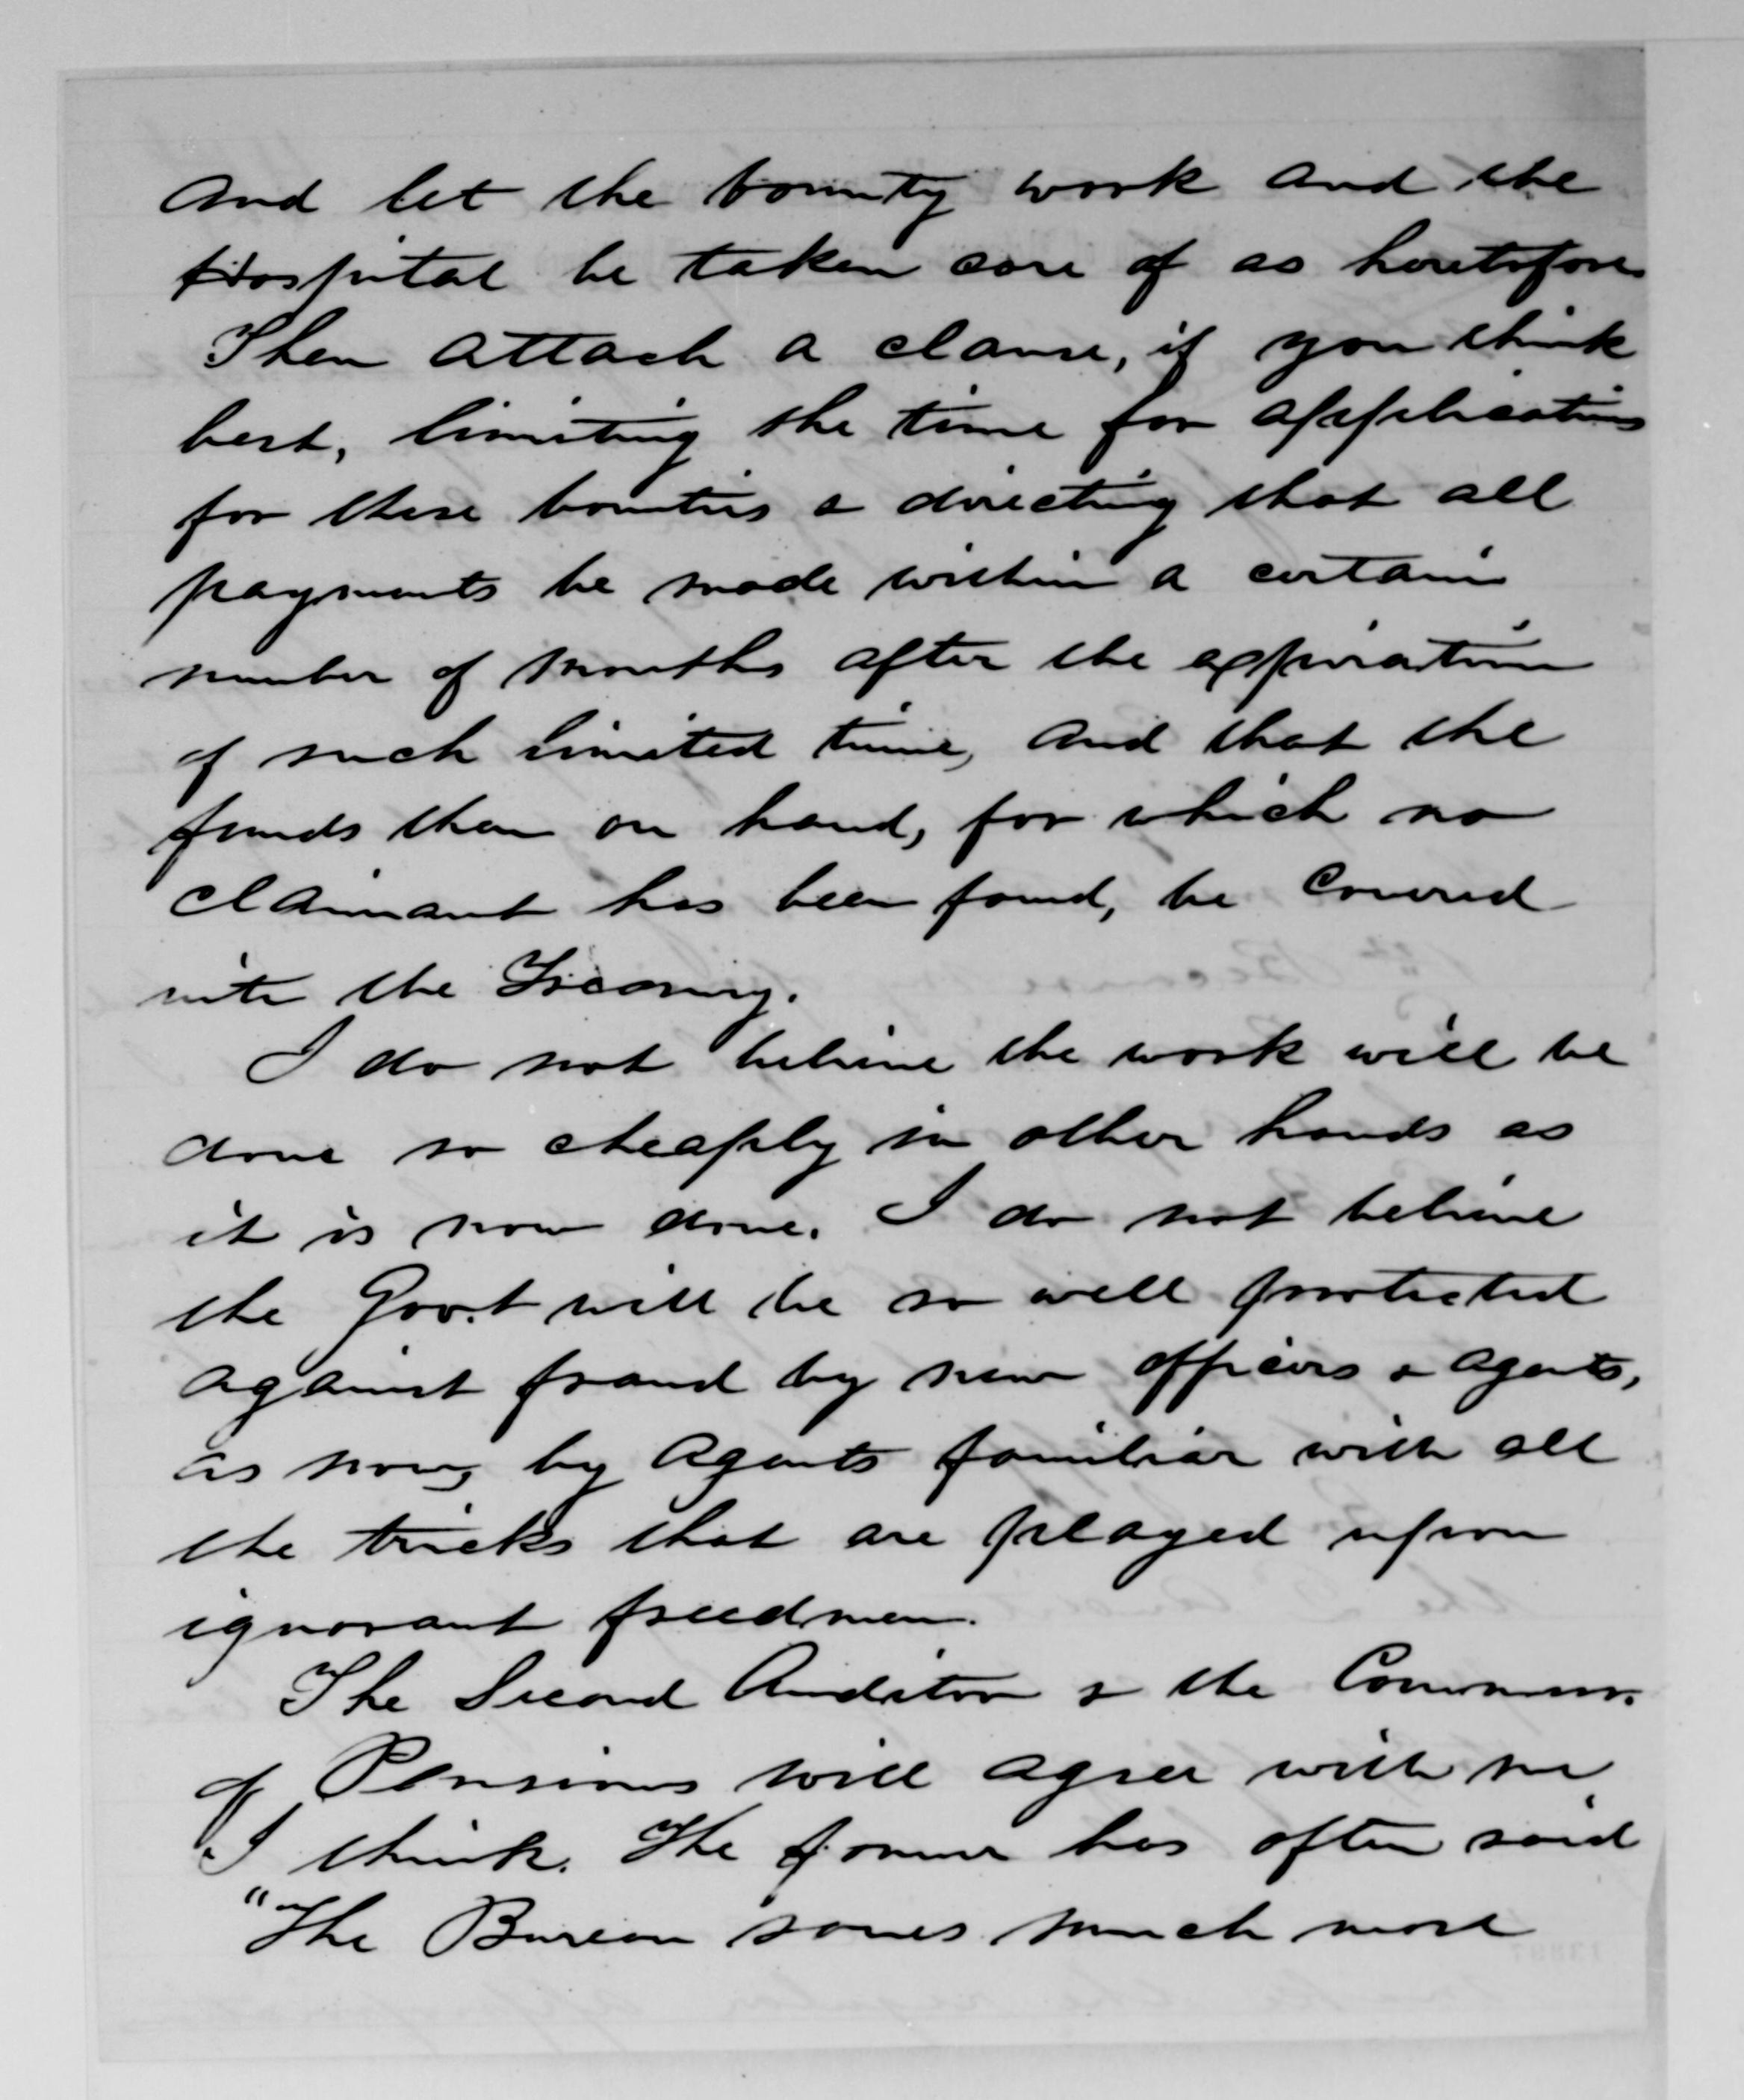 and let the bounty work and the
Hospital be taken care of as heretofore
Then attach a clause, if you think
best, limiting the time for applications
for these bounties & directing that all
payments be made within a certain
number of months after the expiration
of such limited time, and that the
funds then on hand, for which no
claimant has been found, be covered
into the Treasury.
I do not believe the work will be
done so cheaply in other hands as
it is now done. I do not believe
the Gov.t will be so well protected
against fraud by new officers & agents,
as now, by agents familiar with all
the tricks that are played upon
ignorant freedmen.
The Second Auditor & the Commr.
of Pensions will agree with me
I think. The former has often said
"The Bureau saves much more